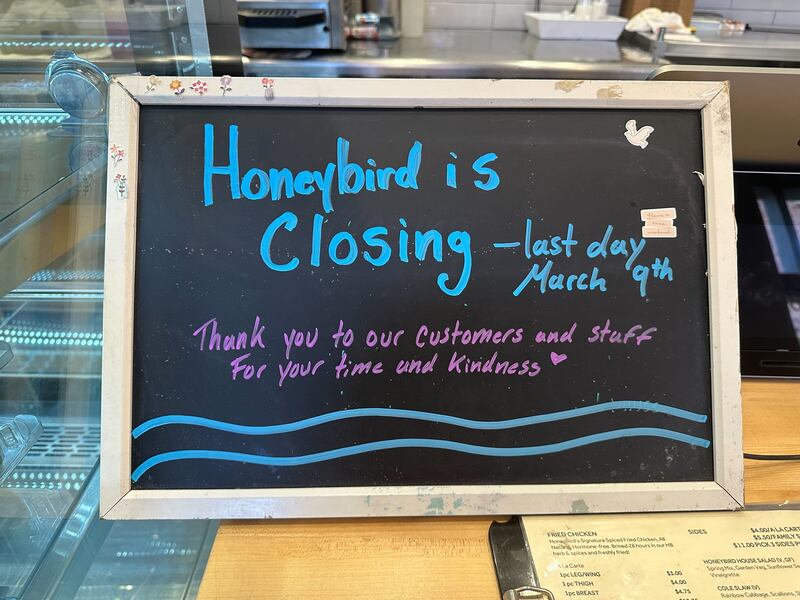 Honeybird is
Closing - last day
March 9th
Thank you to our customers and stuff
For your time and Kindness
FRIED CHICKEN
Honeybird's Signature Spiced Fried Chicken, All
Natural, Hormone-free. Brined 28 hours in our HB
herb & spices and freshly fried!
La Carte
1pc LEG/WING $3.00
1 pc THIGH $4.00
1pc BREAST $4.75
SIDES
$4.00/A LA CART
$5.50/FAMILY S
$11.00 PICK 3 SIDES P
HONEYBIRD HOUSE SALAD (V, GF)
Spring Mix, Garden Veg, Sunflower Se
Vinaigrette.
COLE SLAW (V)
Rainbow Cabbage, Scallions, D